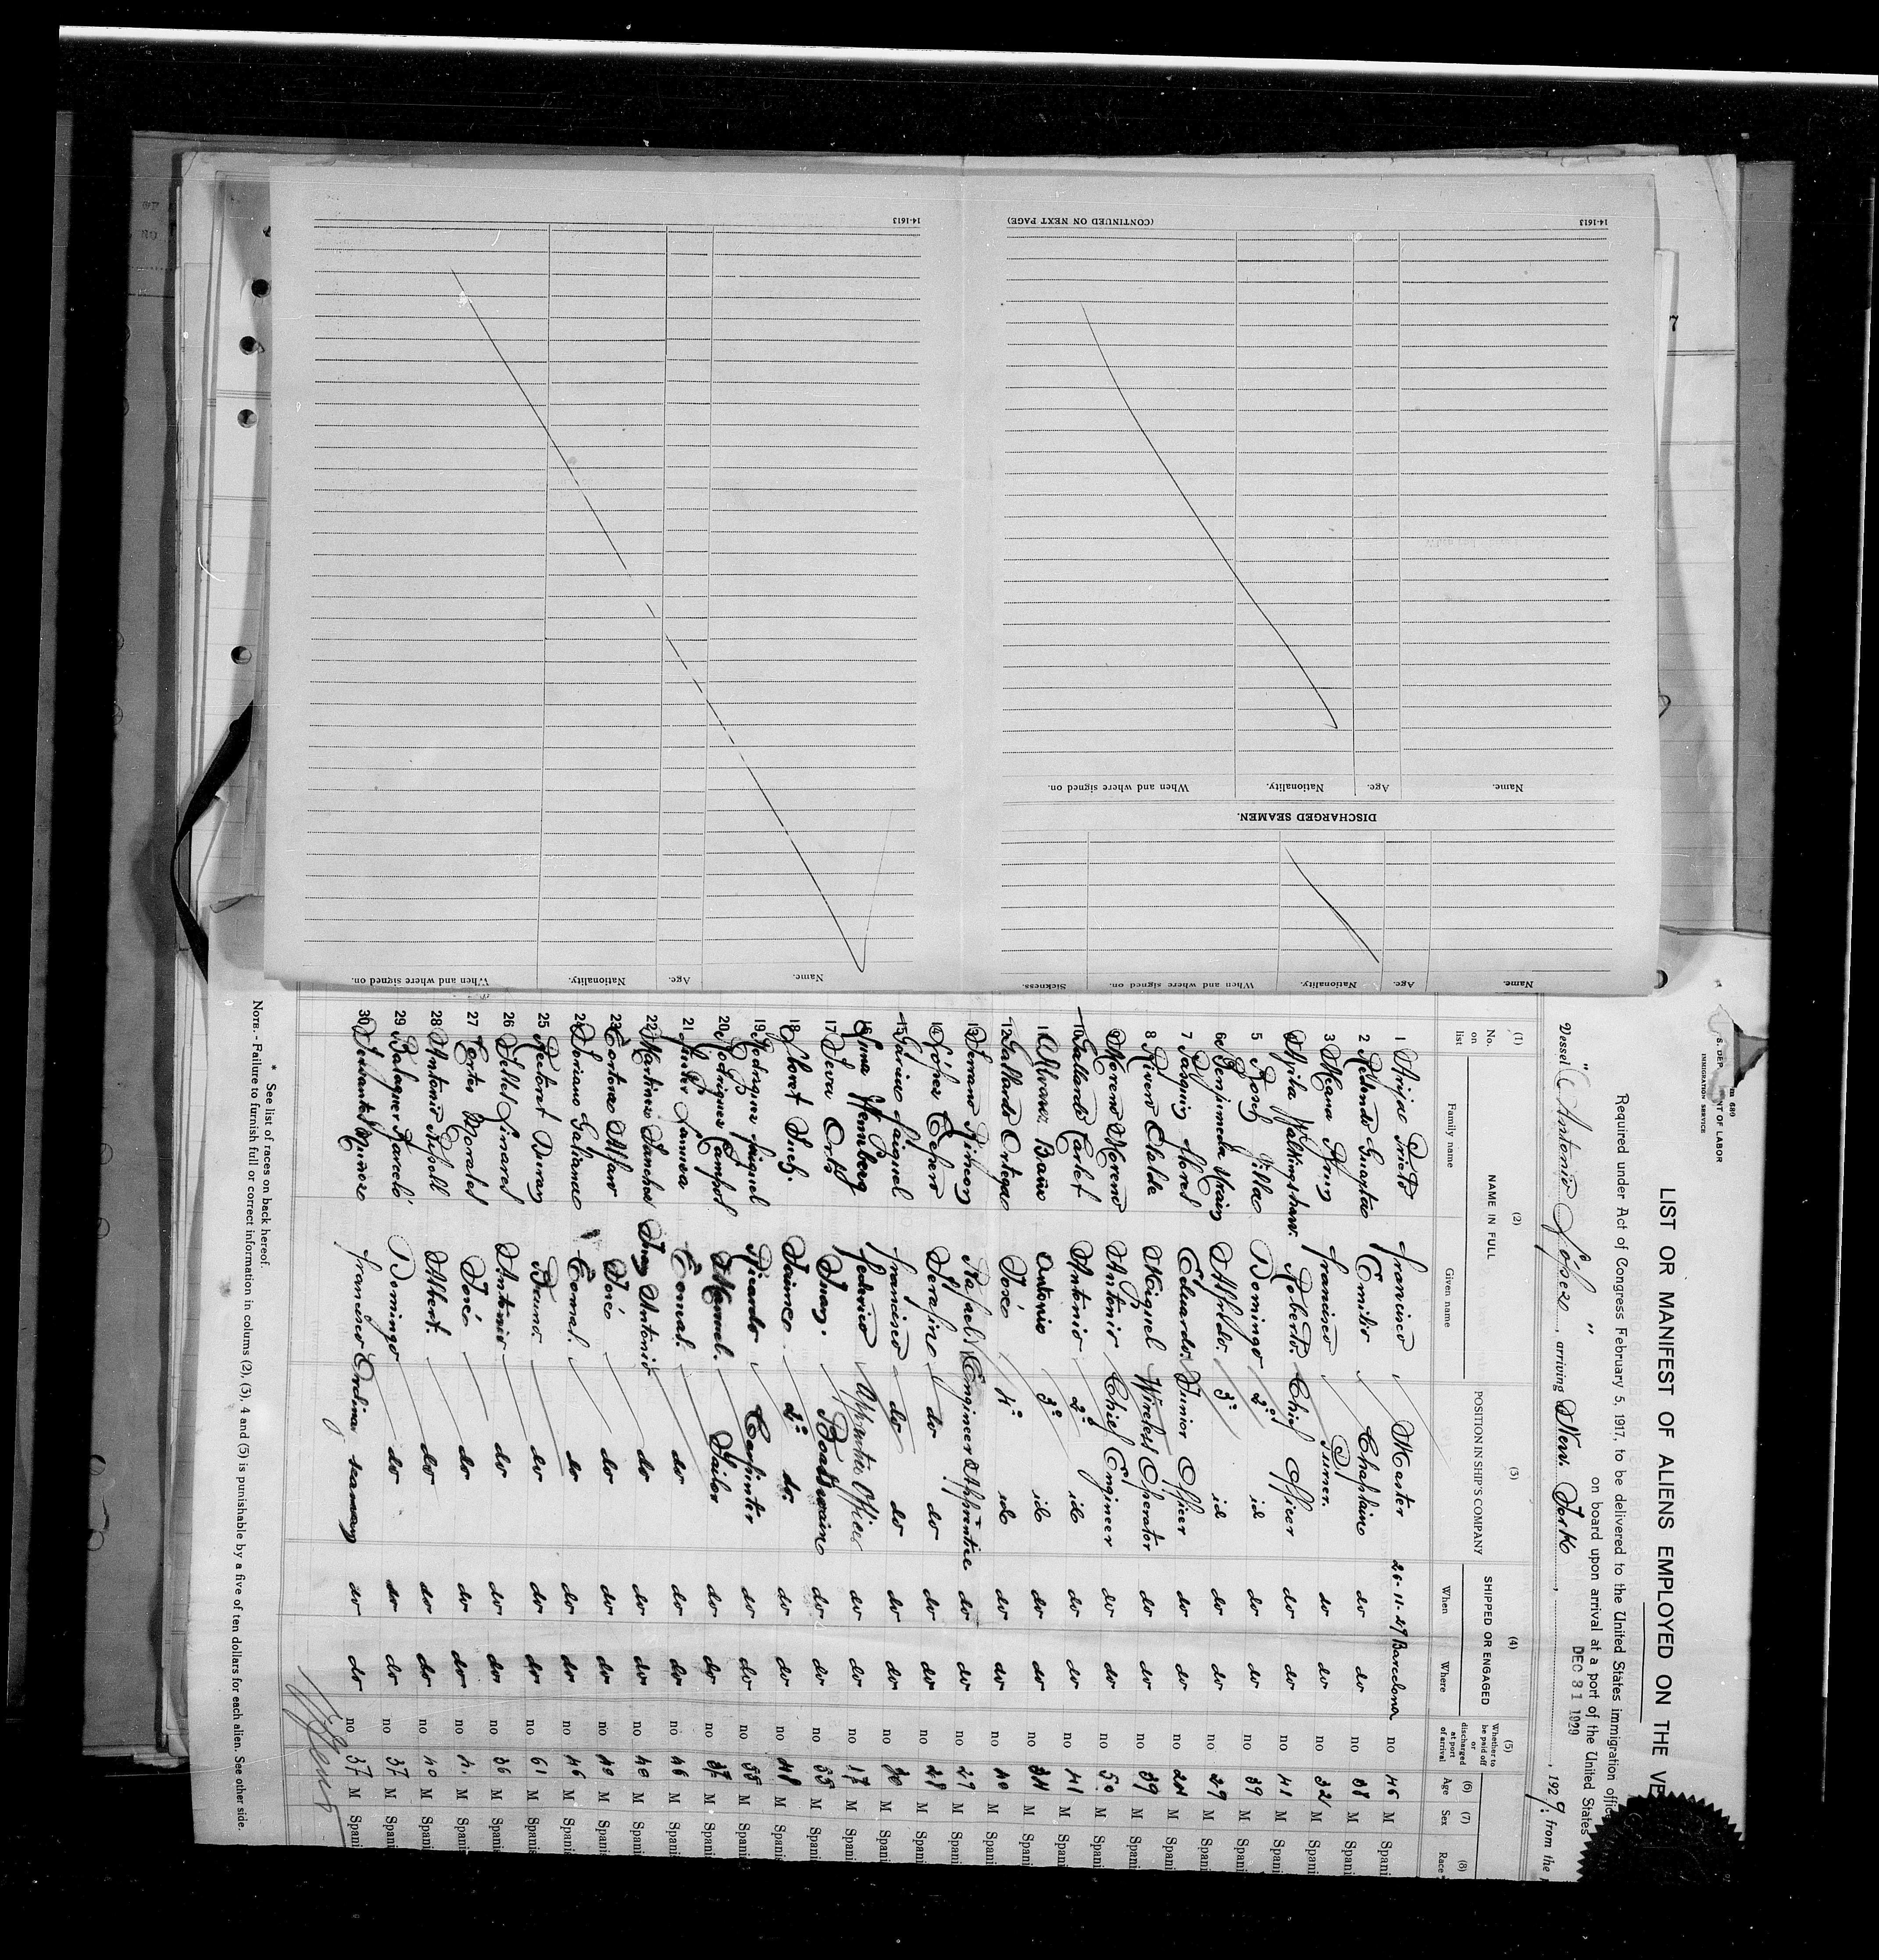 14-1613
(CONTINUED ON NEXT PAGE)
14-1613
Name.
Age.
Nationality.
When and where signed on.
DISCHARGED SEAMEN.
Name.
Age.
Nationality.
When and where signed on.
Sickness.
Name.
Age.
Nationality.
When and where signed on.
689
NT OF LABOR
IMMIGRATION SERVICE
LIST OR MANIFEST OF ALIENS EMPLOYED ON THE VE
Required under Act of Congress February 5, 1917, to be delivered to the United States immigration offic
on board upon arrival at a port of the United States
Vessel " Antonio López " , arriving New York , DEC 31 1929 , 1929: from the
(1) (2) (3) (4) (5) (6) (7) (8)
No. on list NAME IN FULL POSITION IN SHIP'S COMPANY SHIPPED OR ENGAGED Whether to be paid off or discharged at port of arrival Age Sex Race
Family name Given name When Where
1 Prieto Francisco Master 26-11-29 Barcelona no 46 M Spani
2 Redondo Emilio Chaplain do do no 38 M Spani
3 Francisco Purser. do do no 32 M Spani
Roberto. Chief Officer do do no 41 M Spani
5 Bosch Villa Domingo 2º id do do no 39 M Spani
6 Benjumeda Alfredo. 3º id do do no 29 M Spani
7 Flores Eduardo. Junior Officer do do no 24 M Spani
8 Rivero Miguel Wireless Operator do do no 39 M Spani
9 Moreno Moreno Antonio Chief Engineer do do no 50 M Spani
10 Gallardo Antonio 2º id do do no 41 M Spani
11 Alvarez Baño Antonio 3º id do do no 34 M Spani
12 Gallardo Ortega José 4º id do do no 40 M Spani
13 Serrano Rafael Engineer Apprentice do do no 29 M Spani
14 López Cepero Serafino do do do do no 28 M Spani
15 Garcia Francisco do do do do no 30 M Spani
16 Luna Federico Apprentice Officer do do no 17 M Spani
17 Seva Ortiz Juan. Boatswain do do no 55 M Spani
18 Lloret Such. Jaime 2º do. do do no 48 M Spani
19 Rodriguez Ricardo Carpinter do do no 55 M Spani
20 Rodriguez Manuel. Sailor do do no 37 M Spani
21 Tomas. do do do no 46 M Spani
22 Martinez Sanchez Juan Antonio do do do no 40 M Spani
23 José do do do no 40 M Spani
24 Soriano Galiana Tomas. do do do no 46 M Spani
25 Bruno. do do do no 61 M Spani
26 Linares Antonio do do do no 36 M Spani
27 Cortes Morales José do do do no M Spani
28 Albert. do do do no 40 M Spani
29 Balaguer Domingo do do do no 37 M Spani
30 Muñoz Francisco Ordinary seaman do do no 37 M Spani
* See list of races on back hereof.
NOTE. - Failure to furnish full or correct information in colums (2), (3), 4 and (5) is punishable by a five of ten dollars for each alien. See other side.